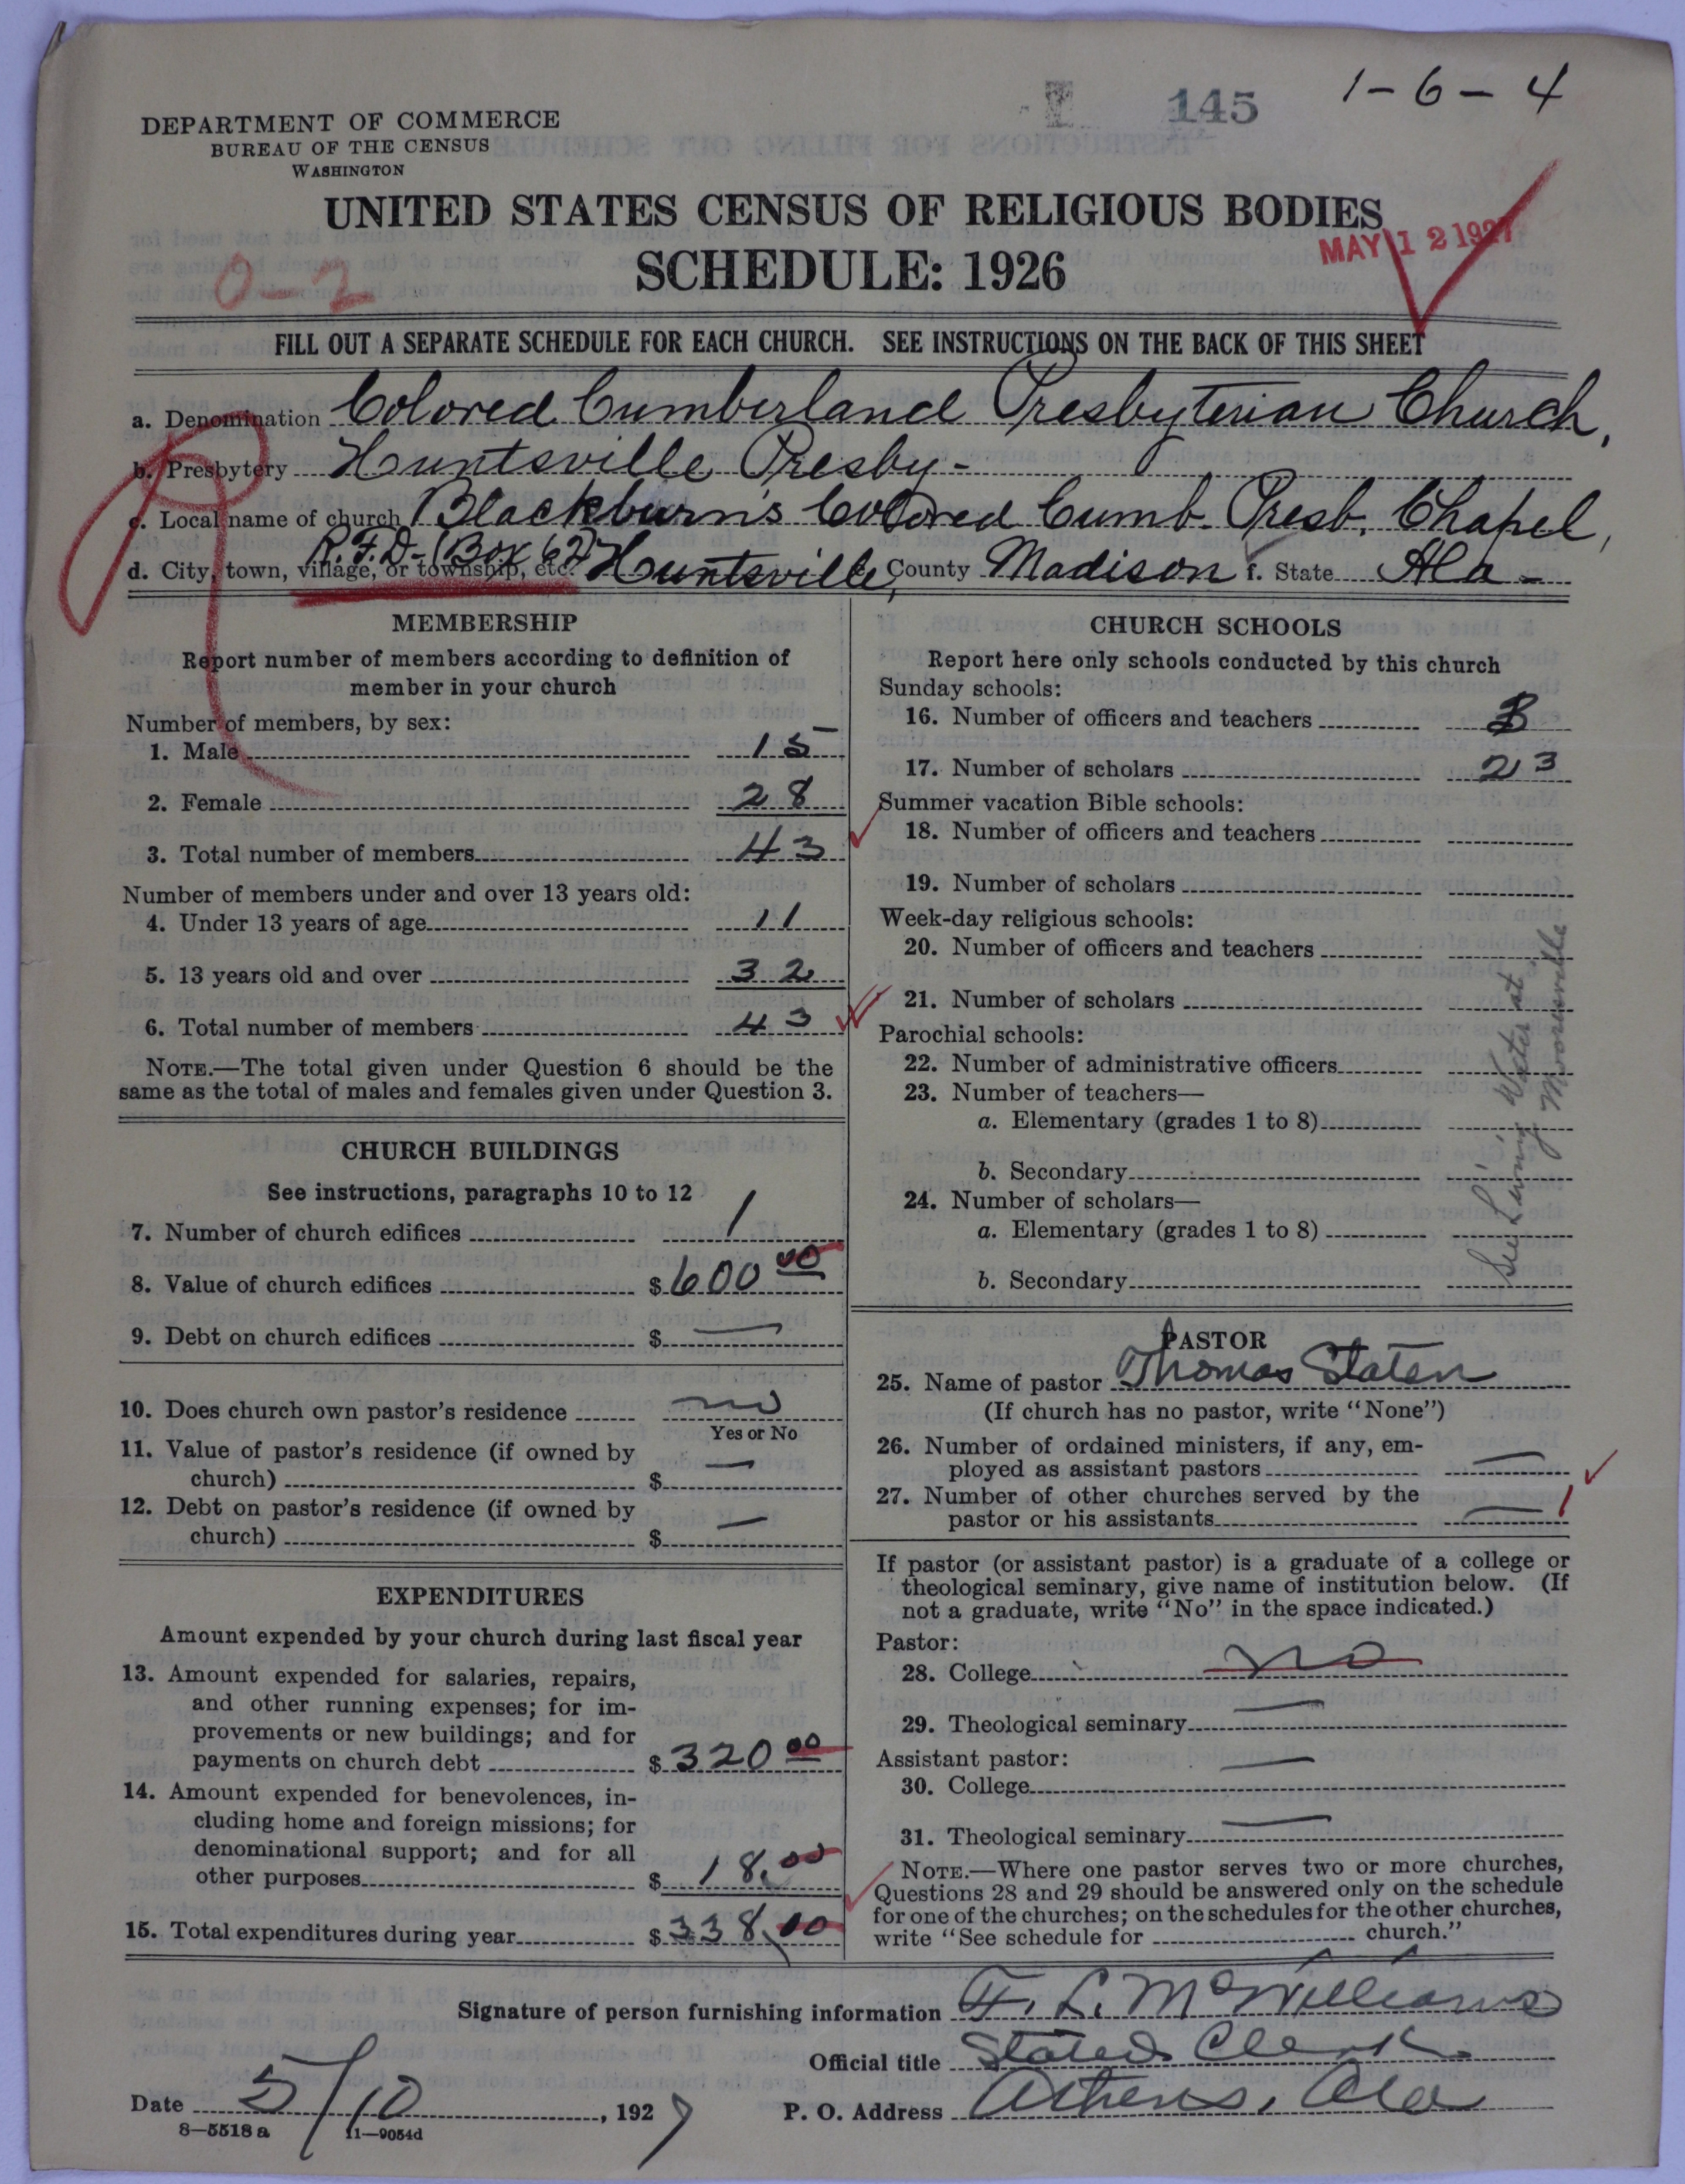 145
1-6-4
DEPARTMENT OF COMMERCE
BUREAU OF THE CENSUS
WASHINGTON
UNITED STATES CENSUS OF RELIGIOUS BODIES
SCHEDULE: 1926
MAY 12 1927
0-2
FILL OUT A SEPARATE SCHEDULE FOR EACH CHURCH. SEE INSTRUCTIONS ON THE BACK OF THIS SHEET
a. Denomination Colored Cumberland Presbyterian Church,
b. Presbytery Huntsville Presby-
c. Local name of church Blackburn's Colored Cumb. Presb. Chapel,
d. City, town, village, or township, etc. R.F.D-(Box 62) Huntsville, County Madison f. State Ala-
MEMBERSHIP
Report number of members according to definition of
member in your church
Number of members, by sex:
1. Male 15
2. Female 28
3. Total number of members 43
Number of members under and over 13 years old:
4. Under 13 years of age 11
5. 13 years old and over 32
6. Total number of members 43
NOTE.—The total given under Question 6 should be the
same as the total of males and females given under Question 3.
CHURCH BUILDINGS
See instructions, paragraphs 10 to 12
7. Number of church edifices 1
8. Value of church edifices $600 00
9. Debt on church edifices $ —
10. Does church own pastor's residence no
Yes or No
11. Value of pastor's residence (if owned by
church) $ —
12. Debt on pastor's residence (if owned by
church) $ —
EXPENDITURES
Amount expended by your church during last fiscal year
13. Amount expended for salaries, repairs,
and other running expenses; for im-
provements or new buildings; and for
payments on church debt $320 00
14. Amount expended for benevolences, in-
cluding home and foreign missions; for
denominational support; and for all
other purposes $18.00
15. Total expenditures during year $338.00
CHURCH SCHOOLS
Report here only schools conducted by this church
Sunday schools:
16. Number of officers and teachers
17. Number of scholars 23
Summer vacation Bible schools:
18. Number of officers and teachers
19. Number of scholars
Week-day religious schools:
20. Number of officers and teachers
21. Number of scholars
Parochial schools:
22. Number of administrative officers
23. Number of teachers—
a. Elementary (grades 1 to 8)
b. Secondary
24. Number of scholars—
a. Elementary (grades 1 to 8)
b. Secondary
See Living Water at
Mooresville
PASTOR
25. Name of pastor Thomas Staten
(If church has no pastor, write "None")
26. Number of ordained ministers, if any, em-
ployed as assistant pastors —
27. Number of other churches served by the
pastor or his assistants — 1
If pastor (or assistant pastor) is a graduate of a college or
theological seminary, give name of institution below. (If
not a graduate, write "No" in the space indicated.)
Pastor:
28. College no
29. Theological seminary —
Assistant pastor:
30. College —
31. Theological seminary —
NOTE.—Where one pastor serves two or more churches,
Questions 28 and 29 should be answered only on the schedule
for one of the churches; on the schedules for the other churches,
write "See schedule for church."
Signature of person furnishing information F. L. McWilliams
Official title Stated Clerk
Date 5/10, 1927 P. O. Address Athens, Ala
8—5518 a 11—9054d